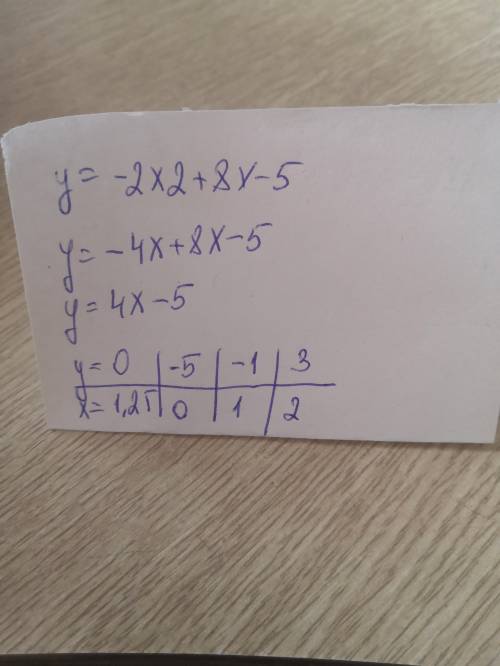 y = -2x2 + 8x - 5
y = -4x + 8x - 5
y = 4x - 5
y = 0 | -5 | -1 | 3
x = 1,25 | 0 | 1 | 2